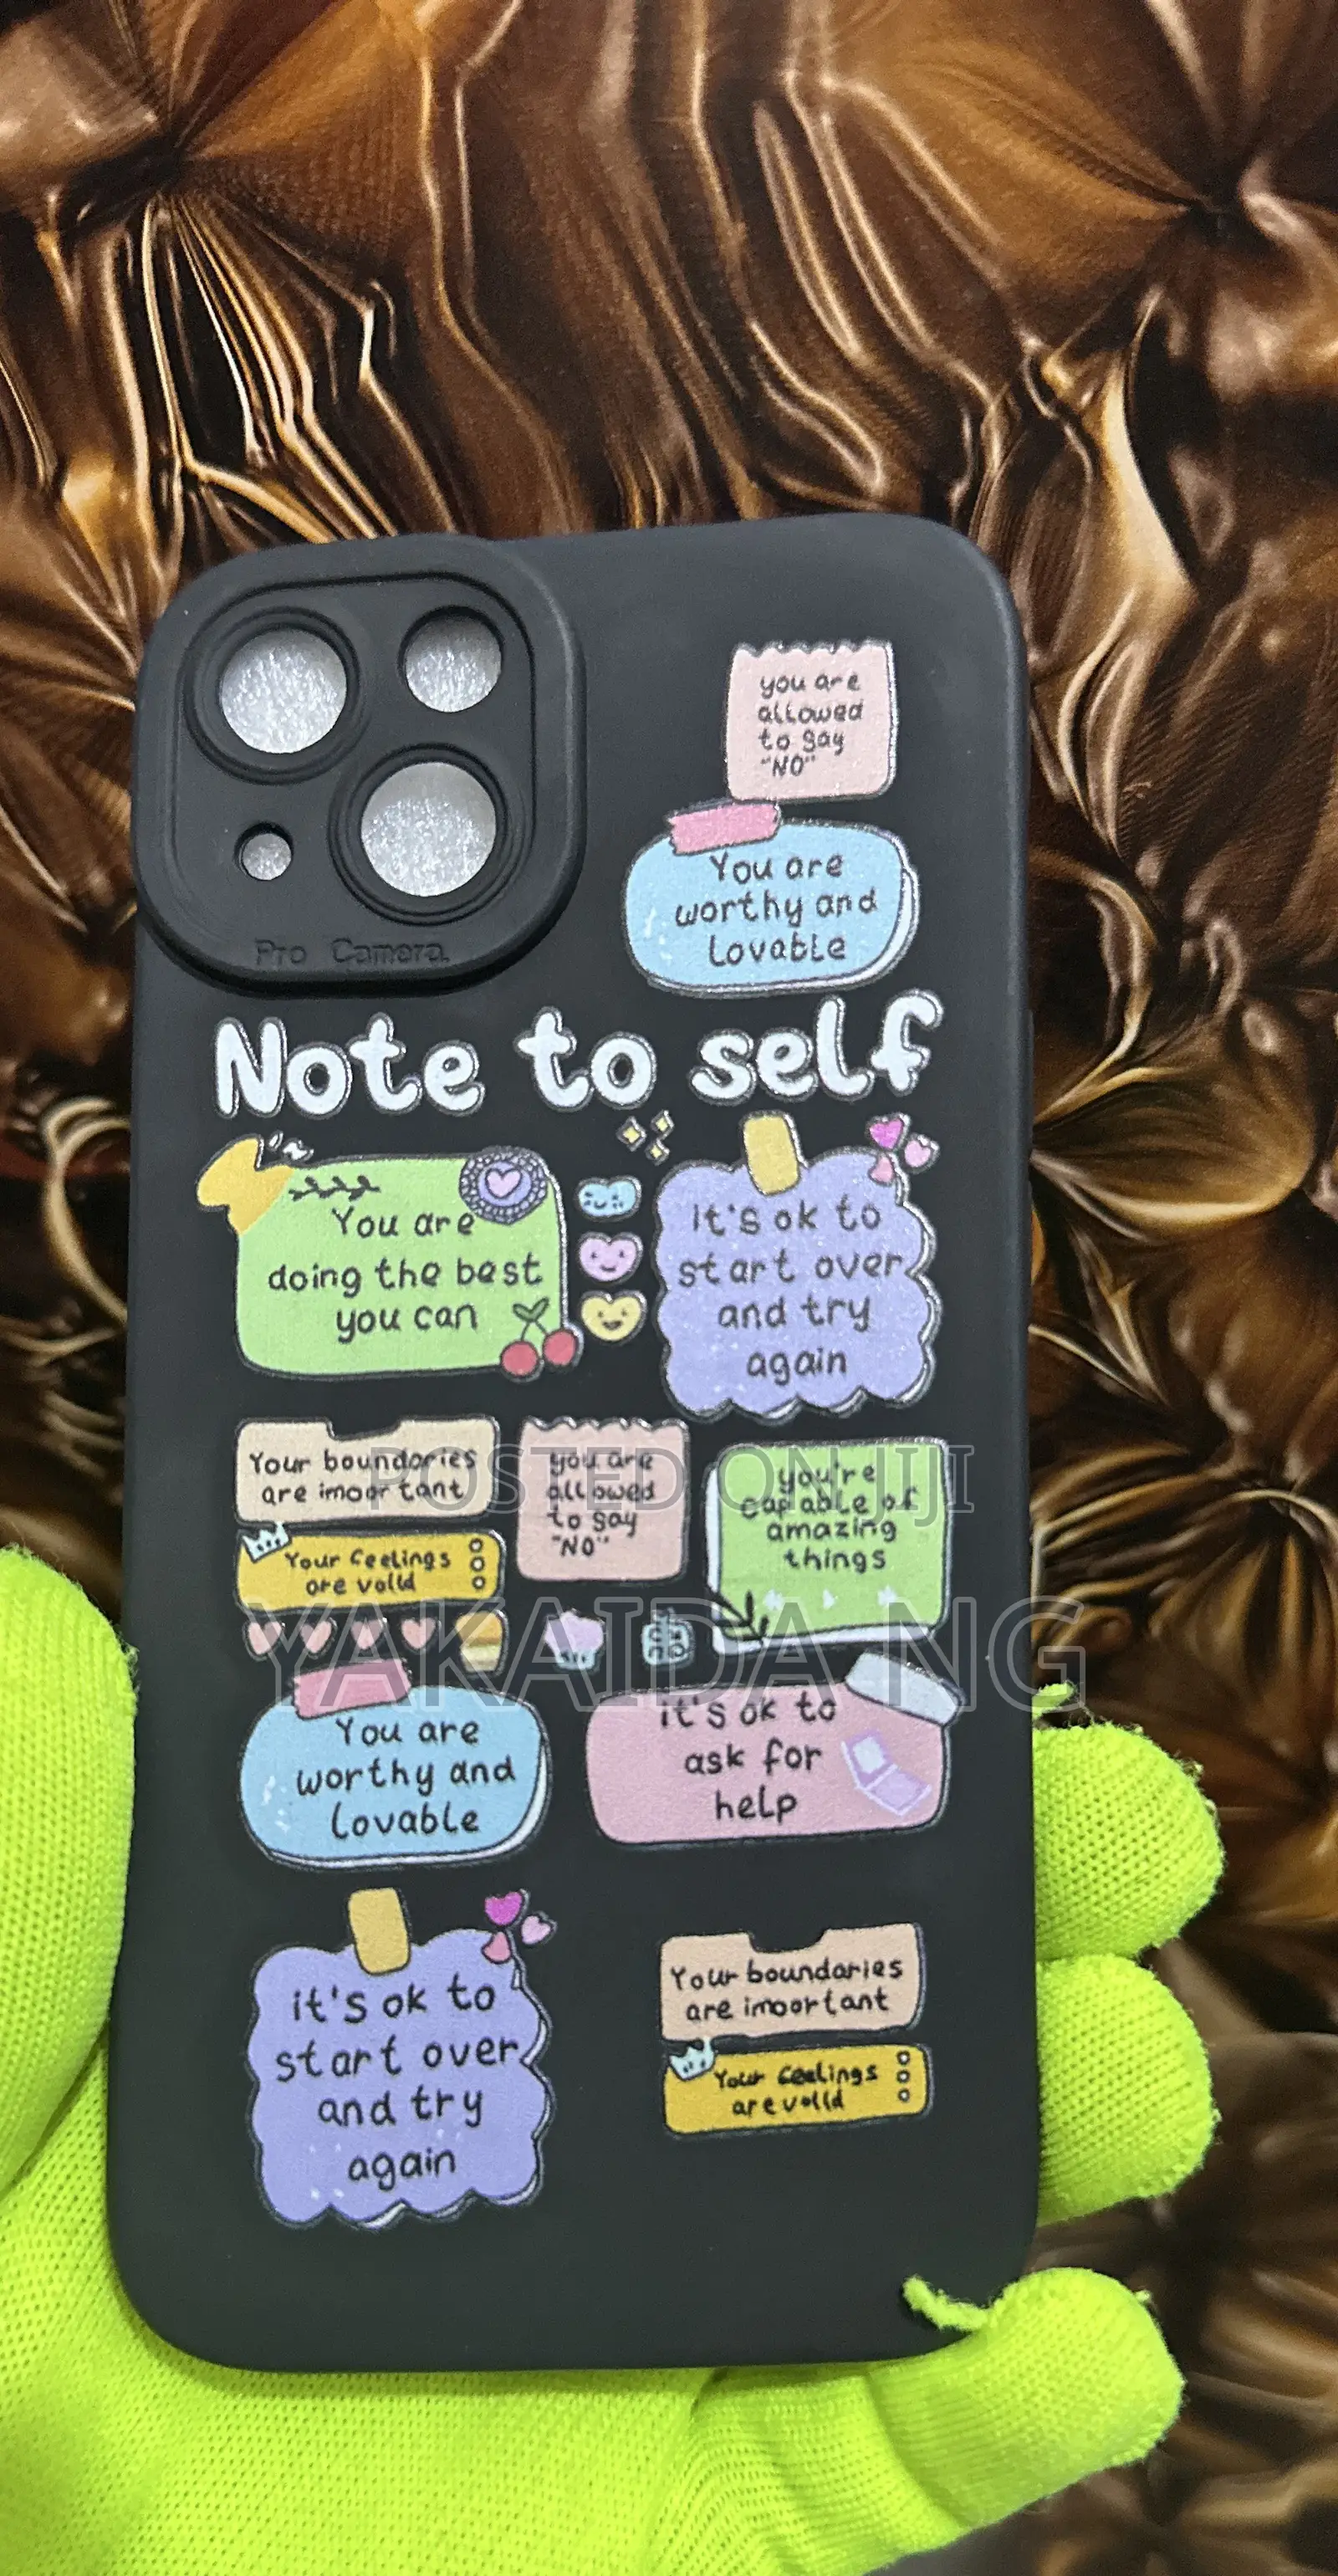 you are
allowed
to say
"NO"
You are
worthy and
lovable
Pro Camera.
Note to self
You are
doing the best
you can
it's ok to
start over
and try
again
Your boundaries
are imoortant
you are
allowed
to say
"NO"
you're
capable of
amazing
things
Your feelings
are valld
POSTED ON JIJI
YAKAIDA NG
You are
worthy and
lovable
it's ok to
ask for
help
it's ok to
start over
and try
again
Your boundaries
are imoortant
Your feelings
are valld